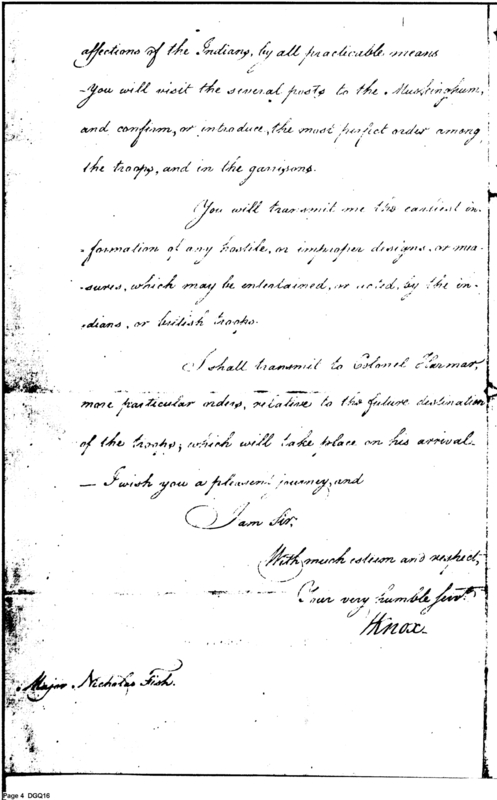 affections of the Indians, by all practicable means
-You will visit the several posts to the Muskinghum,
and confirm, or introduce, the most perfect order among
the troops, and in the garrisons.
You will transmit me the earliest in-
-formation of any hostile, or improper designs, or mea-
-sures, which may be entertained, or acted, by the in-
-dians, or british troops.
I shall transmit to Colonel Harmar,
more particular orders, relative to the future destination
of the troops, which will take place on his arrival-
- I wish you a pleasent journey, and
I am Sir,
With much esteem and respect,
Your very humble Servt.
HKnox-
Major Nicholas Fish.
Page 4 DGQ16